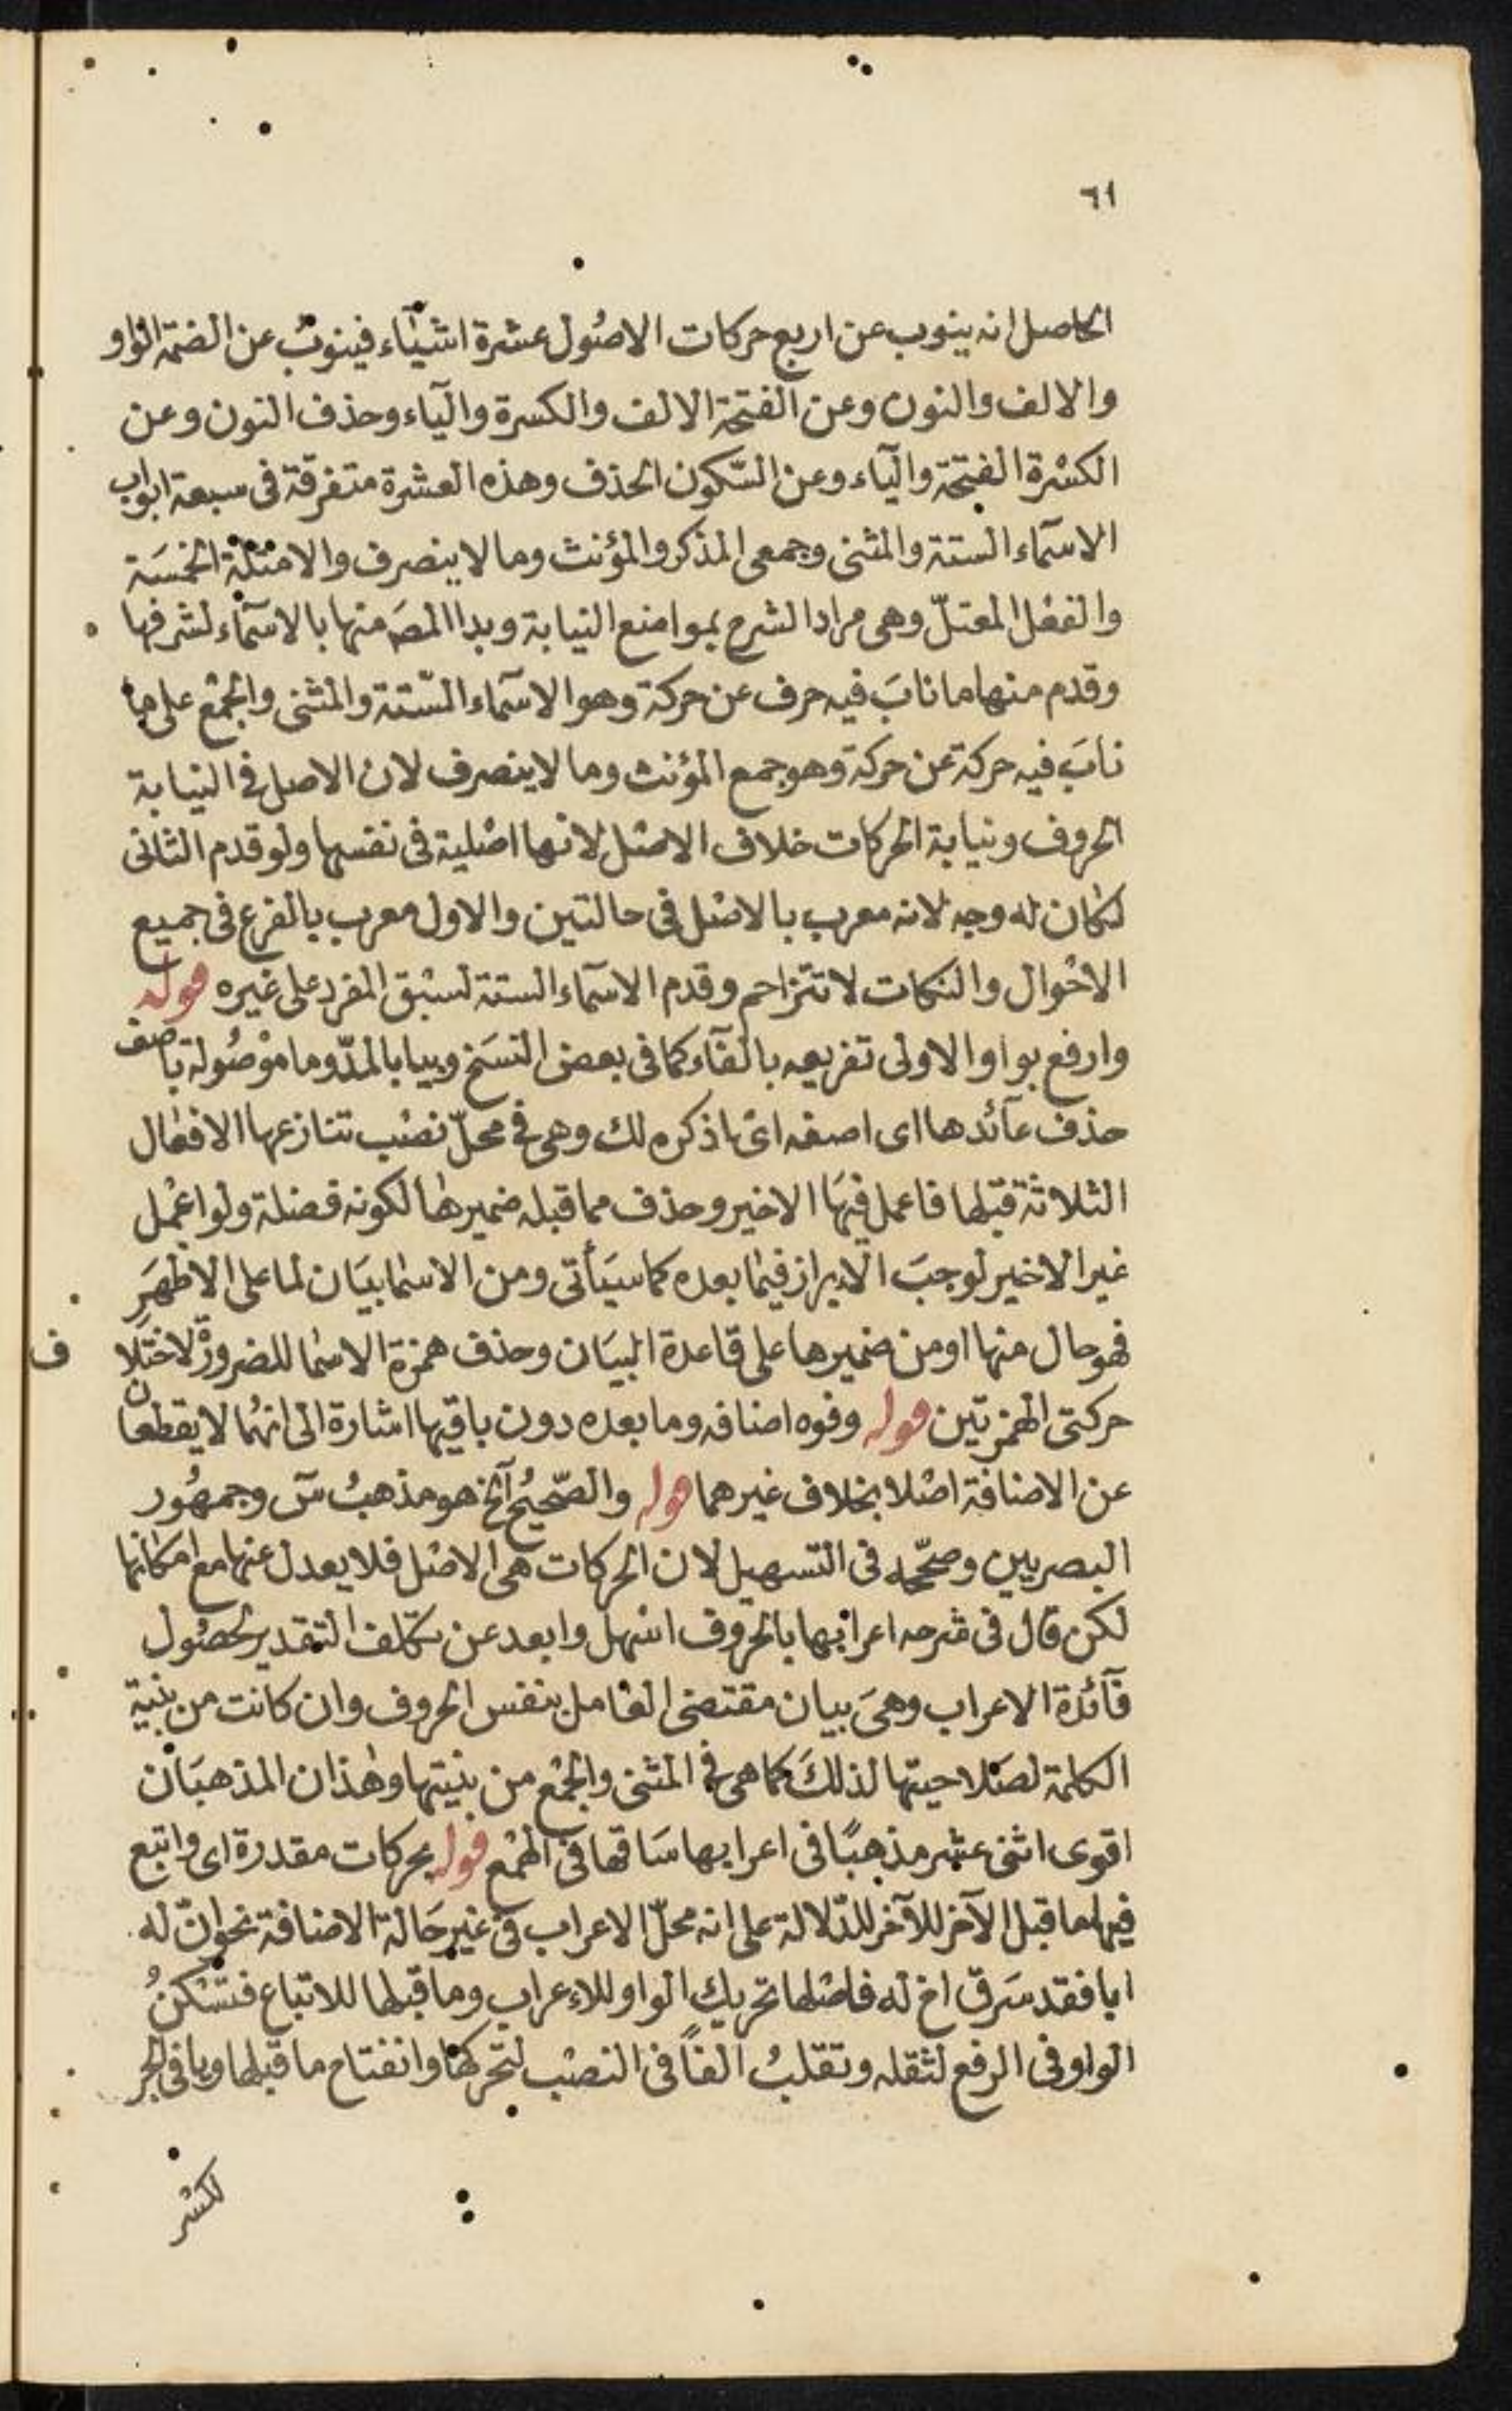 ٦١
الحاصل انه ينوب عن اربع حركات الاصُول عشرة اشئَاء فينوبُ عن الضمّة الواو
والالف والنون وعن الفتحة الالف والكسرة واليآء وحذف النون وعن
الكسْرة الفتحة واليآء وعن السّكون الحذف وهذه العشرة متفرقة فى سبعة ابواب
الاسمآء الستة والمثنى وجمعى المذكر والمؤنث وما لا ينصرف والامثلة الخمسَة
والفعْل المعتلّ وهى مراد الشرح بمواضع النيابة وبدا المصَ منها بالاسمآء لشرفها
وقدم منها ما نابَ فيه حرف عن حركة وهو الاسمآء السّتة والمثنى والجمْع على ما
نابَ فيه حركة عن حركة وهو جمع المؤنث وما لا ينصرف لان الاصل فى النيابة
الحروف ونيابة الحركات خلاف الاصْل لانها اصْلية فى نفسها ولو قدم الثانى
لكان له وجه لانه معرب بالاصْل فى حالتين والاول معرب بالفرع فى جميع
الاحْوال والنكات لا تتزاحم وقدم الاسمآء الستة لسبْق المفرد على غيره قوله
وارفع بواو الاولى تفريعه بالفآء كما فى بعض النسَخ وبيا بالمدّ وما موْصُولة باصف
حذف عآئدها اى اصفه اى اذكره لك وهى فى محلّ نصْب تنازعها الافعال
الثلاثة قبْلها فاعمل فيهَا الاخير وحذف مما قبله ضميرها لكونه فضلة ولو اعْمل
غير الاخير لوجبَ الابراز فيما بعده كما سيَأتى ومن الاسما بيَان لما على الاظهَرِ
فهو حال منها او من ضميرها على قاعدة البيَان وحذف همزة الاسما للضرورة لاختلا
ف
حركتى الهمزتين قوله وفوه اضافه وما بعده دون باقيها اشارة الى انهُما لا يقطعان
عن الاضافة اصْلا بخلاف غيرهما قوله والصّحيحُ آلخ هو مذهبُ سٓ وجمهُور
البصريين وصحّحه فى التسهيل لان الحركات هى الاصْل فلا يعدل عنها مع امكانها
لكن قال فى شرحه اعرابها بالحروف اسْهل وابعد عن تكلف التقدير لحصُول
فآئدة الاعراب وهىَ بيان مقتضى العامل بنفس الحروف وان كانت من بنية
الكلمة لصَلاحيتها لذلكَ كما هى فى المثنى والجمْع من بنيتها وهٰذان المذهبَان
اقوى اثنى عشر مذهبًا فى اعرابها سَاقها فى الهمْع قوله بحركات مقدرة اى واتبع
فيها ما قبل الآخر للآخر للدّلالة على انه محلّ الاعراب فى غير حَالة الاضافة نحو انّ له
ابا فقد سَرق اخ له فاصْلها تحريك الواو للاعراب وما قبلها للاتباع فتسْكنُ
الواو فى الرفع لثقله وتقلبُ الفًا فى النصْب لتحركها وانفتاح ما قبلها ويا فى الجر
لكسر